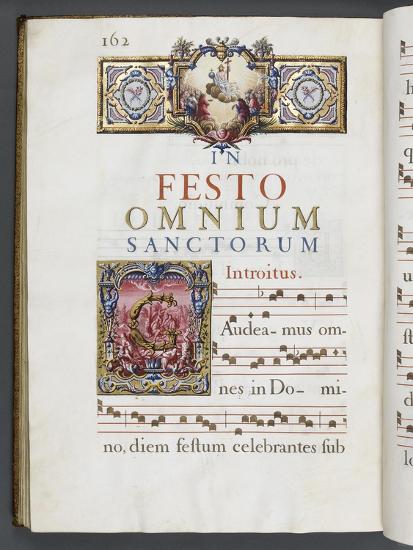 162
IN
FESTO
OMNIUM
SANCTORUM
Introitus.
G Audea- mus om-
nes in Do- mi-
no, diem feſtum celebrantes ſub